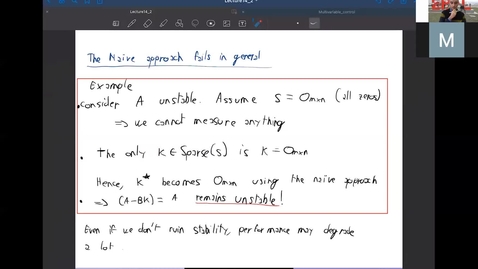 Lecture14_2
Lecture14_2
Multivariable_control
The Naive approach fails in general
Example
• consider A unstable. Assume S = 0mxn (all zeros)
⇒ we cannot measure anything
• The only K ∈ Sparse(S) is K = 0mxn
Hence, K* becomes 0mxn using the naive approach
• ⇒ (A-BK) = A remains unstable!
Even if we don't ruin stability, performance may degrade
a lot
M